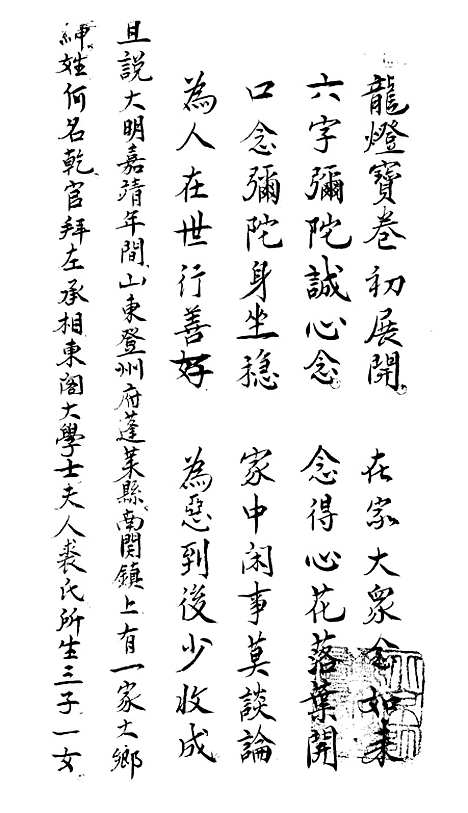 龍燈寶卷初展開 在家大衆念如来
六字彌陀誠心念 念得心花落葉開
口念彌陀身坐稳 家中闲事莫談論
為人在世行善好 為惡到後少收成
且說大明嘉靖年間山東登州府蓬萊縣南関鎮上有一家大鄉
紳姓何名乾官拜左承相東閣大學士夫人裘氏所生三子一女